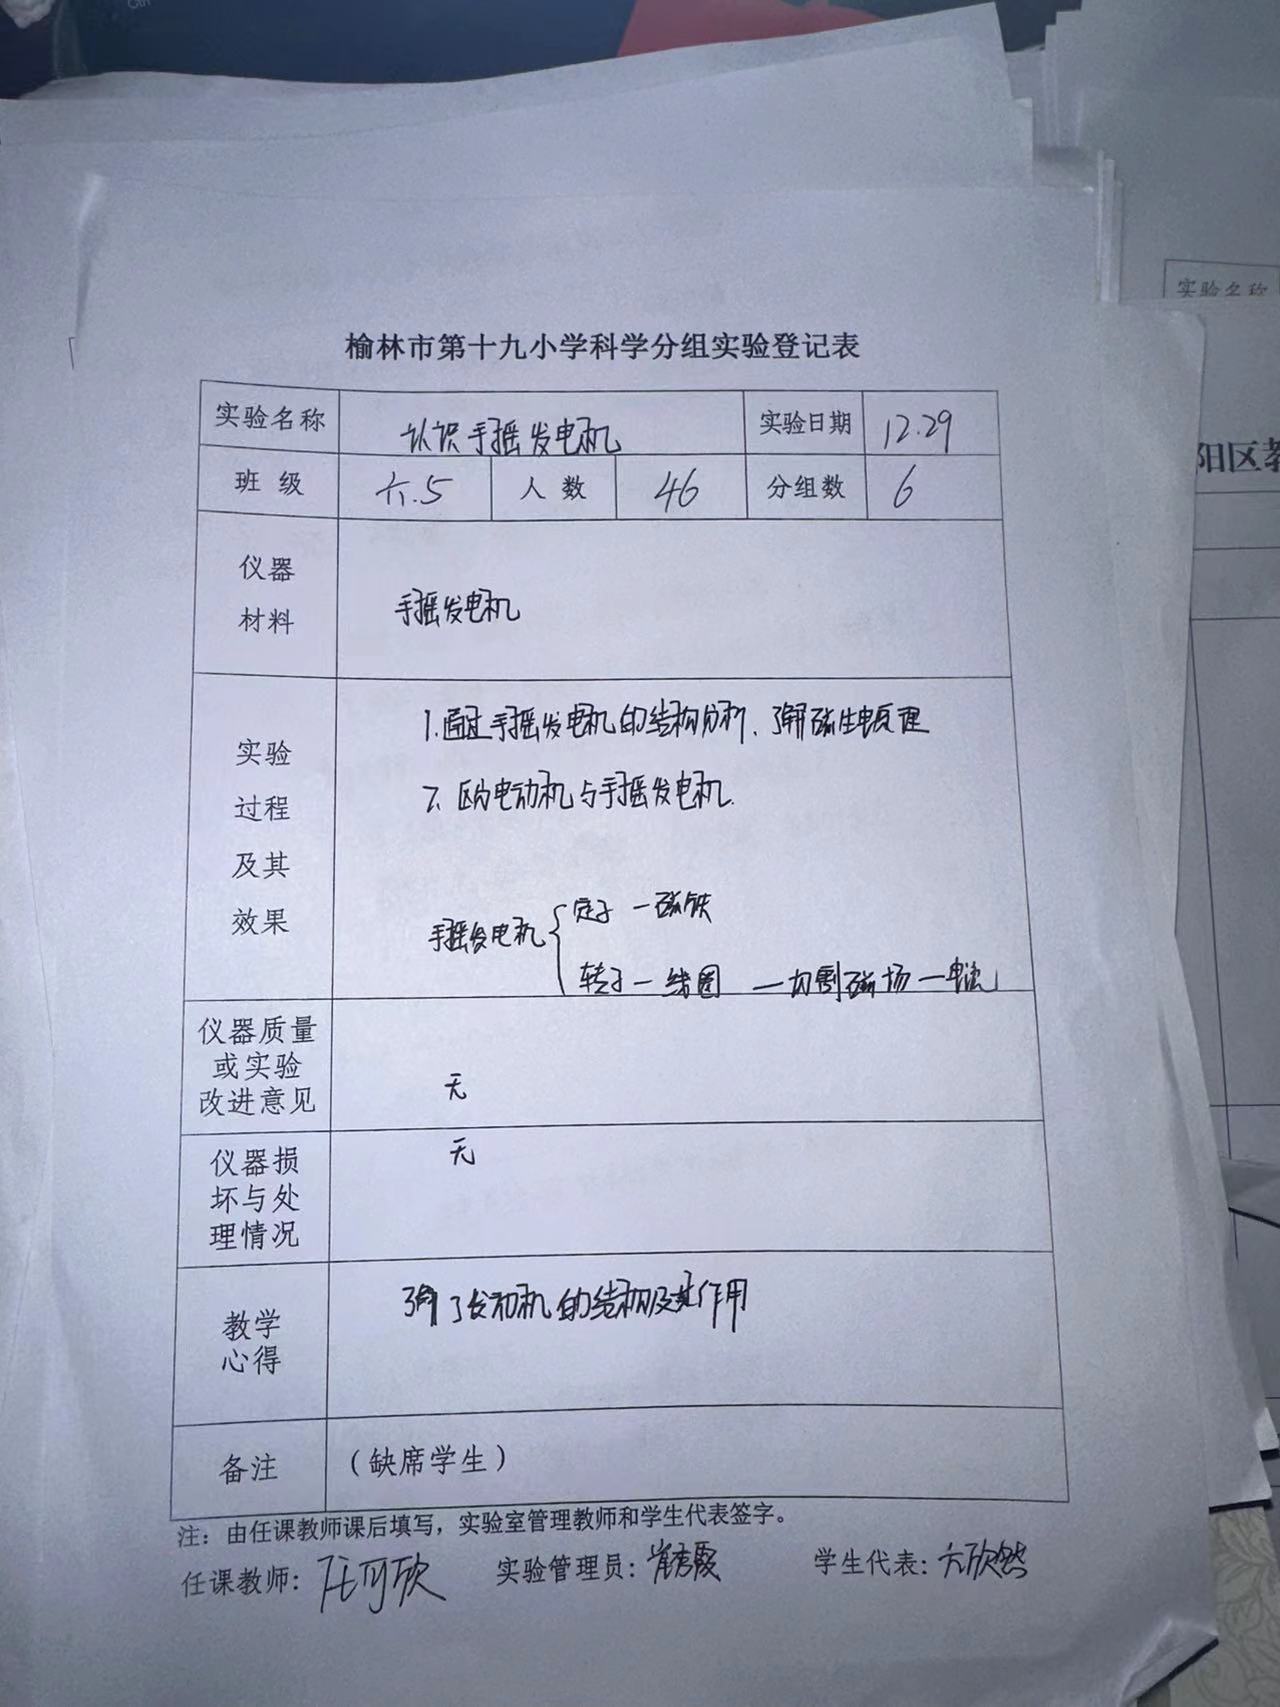 榆林市第十九小学科学分组实验登记表
实验名称 认识手摇发电机 实验日期 12.29
班 级 六.5 人 数 46 分组数 6
仪器
材料
手摇发电机
1.通过手摇发电机的结构分析、了解磁生电原理
实验
过程
2. 区分电动机与手摇发电机.
及其
效果
手摇发电机 定子 — 磁铁
转子 — 线圈 — 切割磁场 — 电流
仪器质量
或实验
改进意见
无
仪器损
坏与处
理情况
无
教学
心得
了解了发动机的结构及其作用
备注 （缺席学生）
注：由任课教师课后填写，实验室管理教师和学生代表签字。
任课教师： 任可欣 实验管理员： 学生代表：
实验名称
阳区教